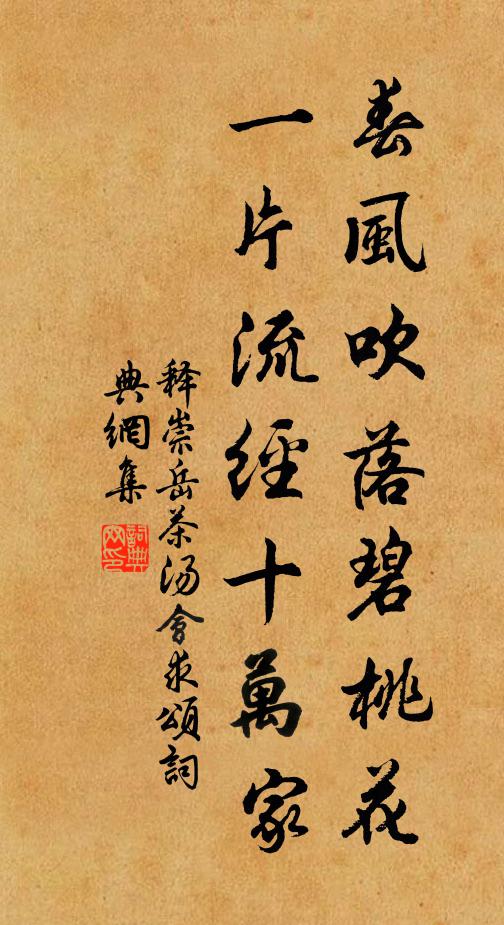 春風吹落碧桃花
一片流經十萬家
释崇岳茶汤會求頌詞
典網集
詞典
网印